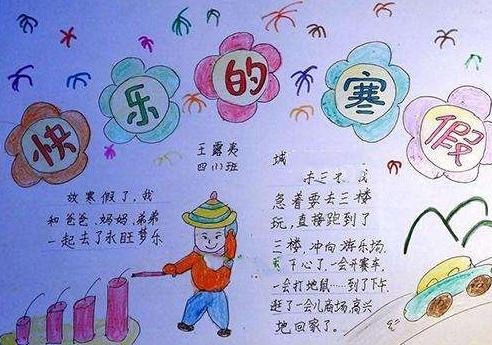 快乐的寒假
王露
四 班
放寒假了，我
和爸爸、妈妈、弟弟
一起去了永旺梦乐
城
三 我
急着要去三楼
玩，直接跑到了
三楼，冲向游乐场，
开心了，一会开赛车，
一会打地鼠……到了下午
逛了一会儿商场，高兴
地回家了。